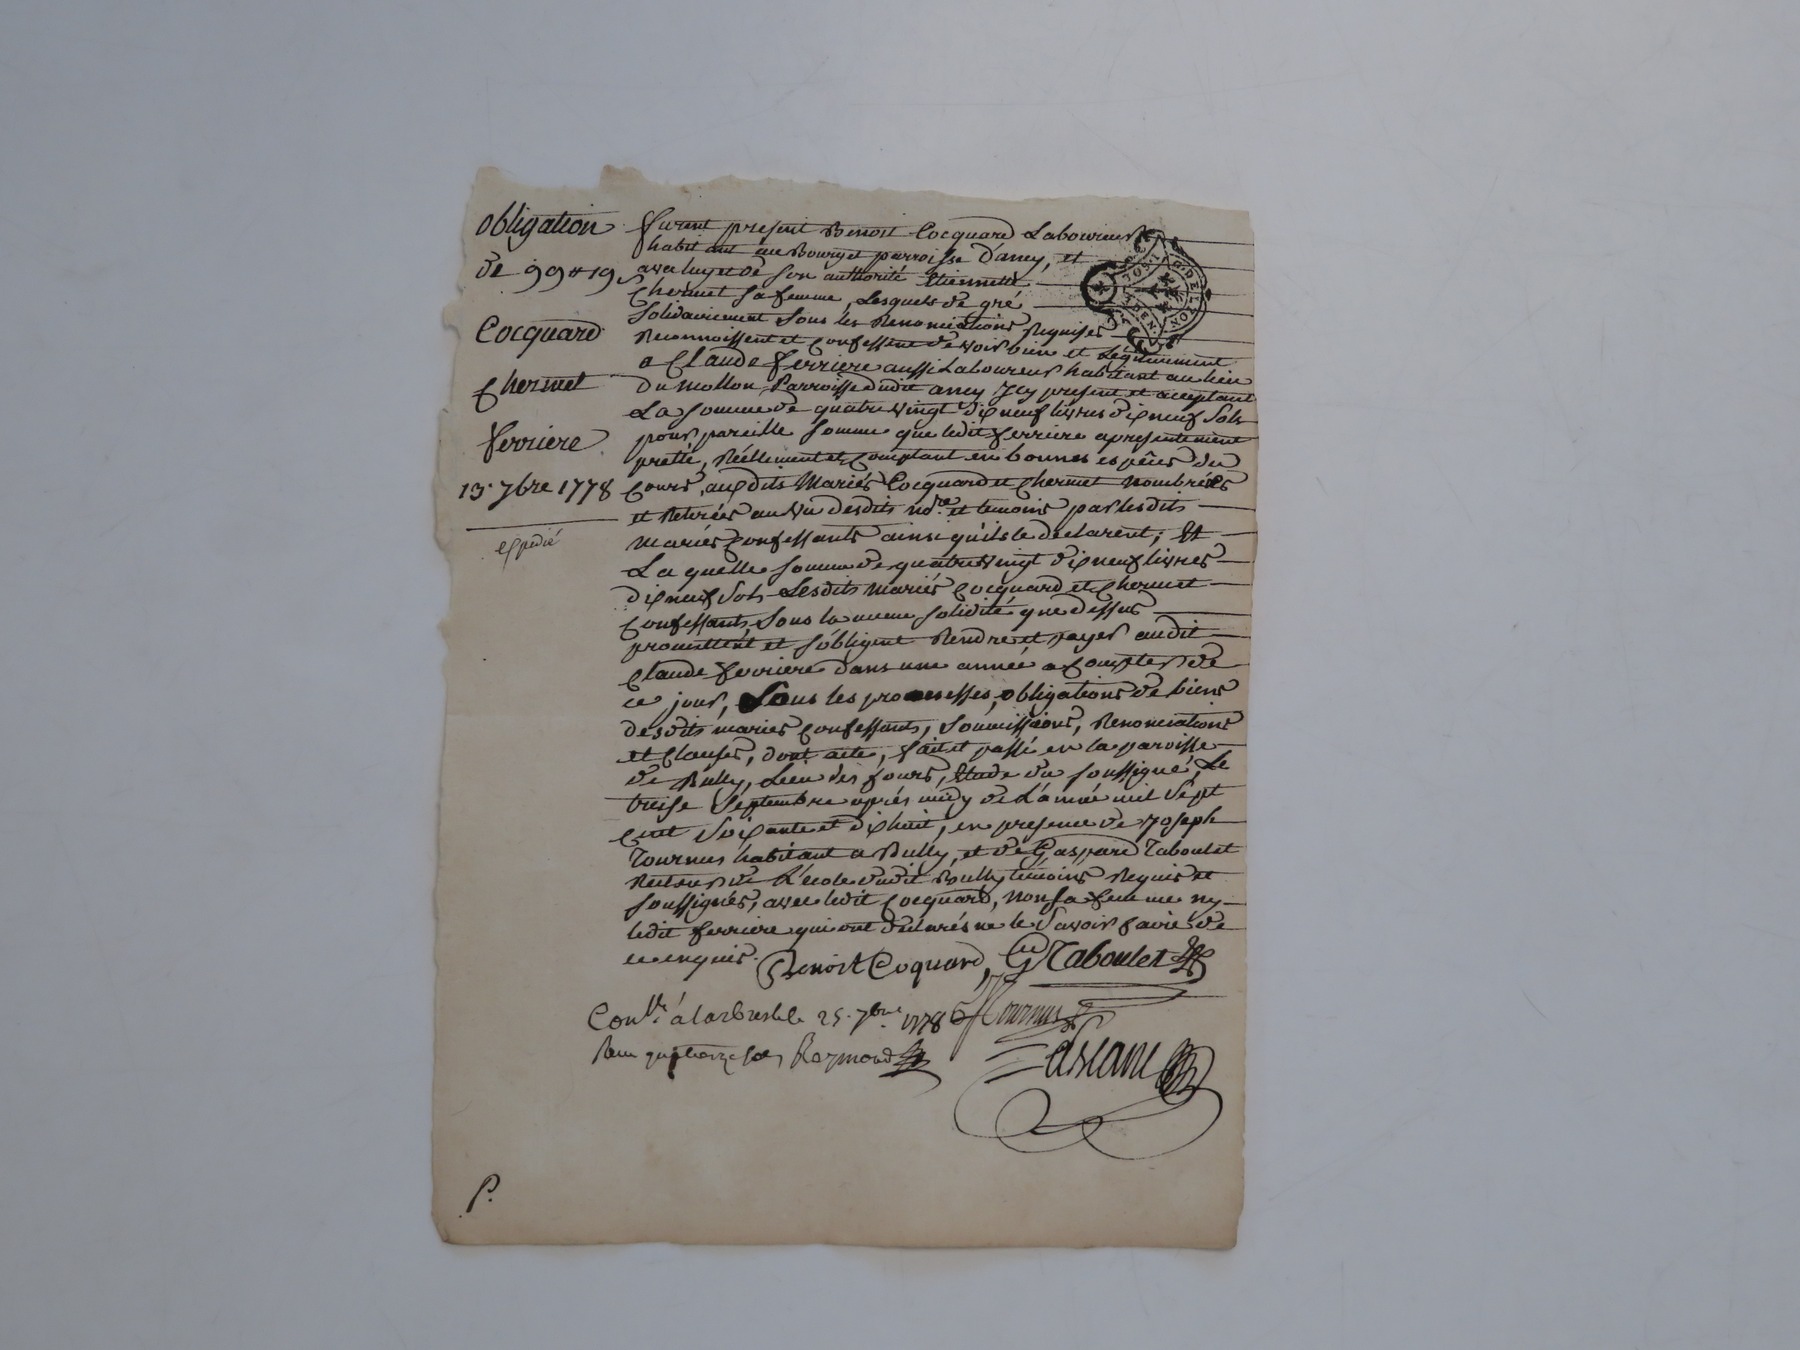 obligation
de 99# 19s
Cocquard
Chermet
ferriere
13. 7bre 1778
expedié
furent present Benoit Cocquard Laboureur
habitant au Bourg et parroisse d'ancy, et
avec luy et de son authorité Etiennette
Chermet sa femme, Lesquels de gré
solidairement sous les Renonciations Requises
Reconnoissent et Confessent devoir bien et Légitimement
a Claude ferriere aussi Laboureur habitant au lieu
du Mollon Parroisse dudit ancy Icy present et acceptant
La somme de quatre vingt dix neuf livres dix neuf sols
pour pareille somme que ledit ferriere a presentement
pretté, Réellement et Comptant en bonnes espèces du
Cours, auxdits Mariés Cocquard et Chermet Nombrées
et Retirées au vu desdits nore. et temoins par lesdits
mariés Confessants ainsi qu'ils le déclarent; Et
La quelle somme de quatre vingt dix neuf livres
dix neuf sols Lesdits mariés Cocquard et Chermet
Confessants, sous la meme solidité que dessus
promettent et s'obligent Rendre et payer audit
Claude ferriere dans une année a Compter de
ce jour, Sous les promesses, obligations de biens
desdits mariés Confessants, soumissions, Renonciations
et Clauses, dont acte, fait et passé en la paroisse
de Bully, Lieu des fours, Etude du soussigné, Le
treize Septembre après midy de L'année mil Sept
Cent Soixante et dix huit, en presence de Joseph
Tournus habitant a Bully, et de Gaspard Taboulet
Recteur de L'école dudit Bully temoins Requis et
soussignés, avec ledit Cocquard, Non sa femme ny
ledit ferriere qui ont déclarés ne le Savoir faire de
ce enquis.
Benoit Coquard, G Taboulet
J Tournus
Conllé. à Larbresle le 25. 7bre 1778
Reçu quatorze sols Raymond
P.